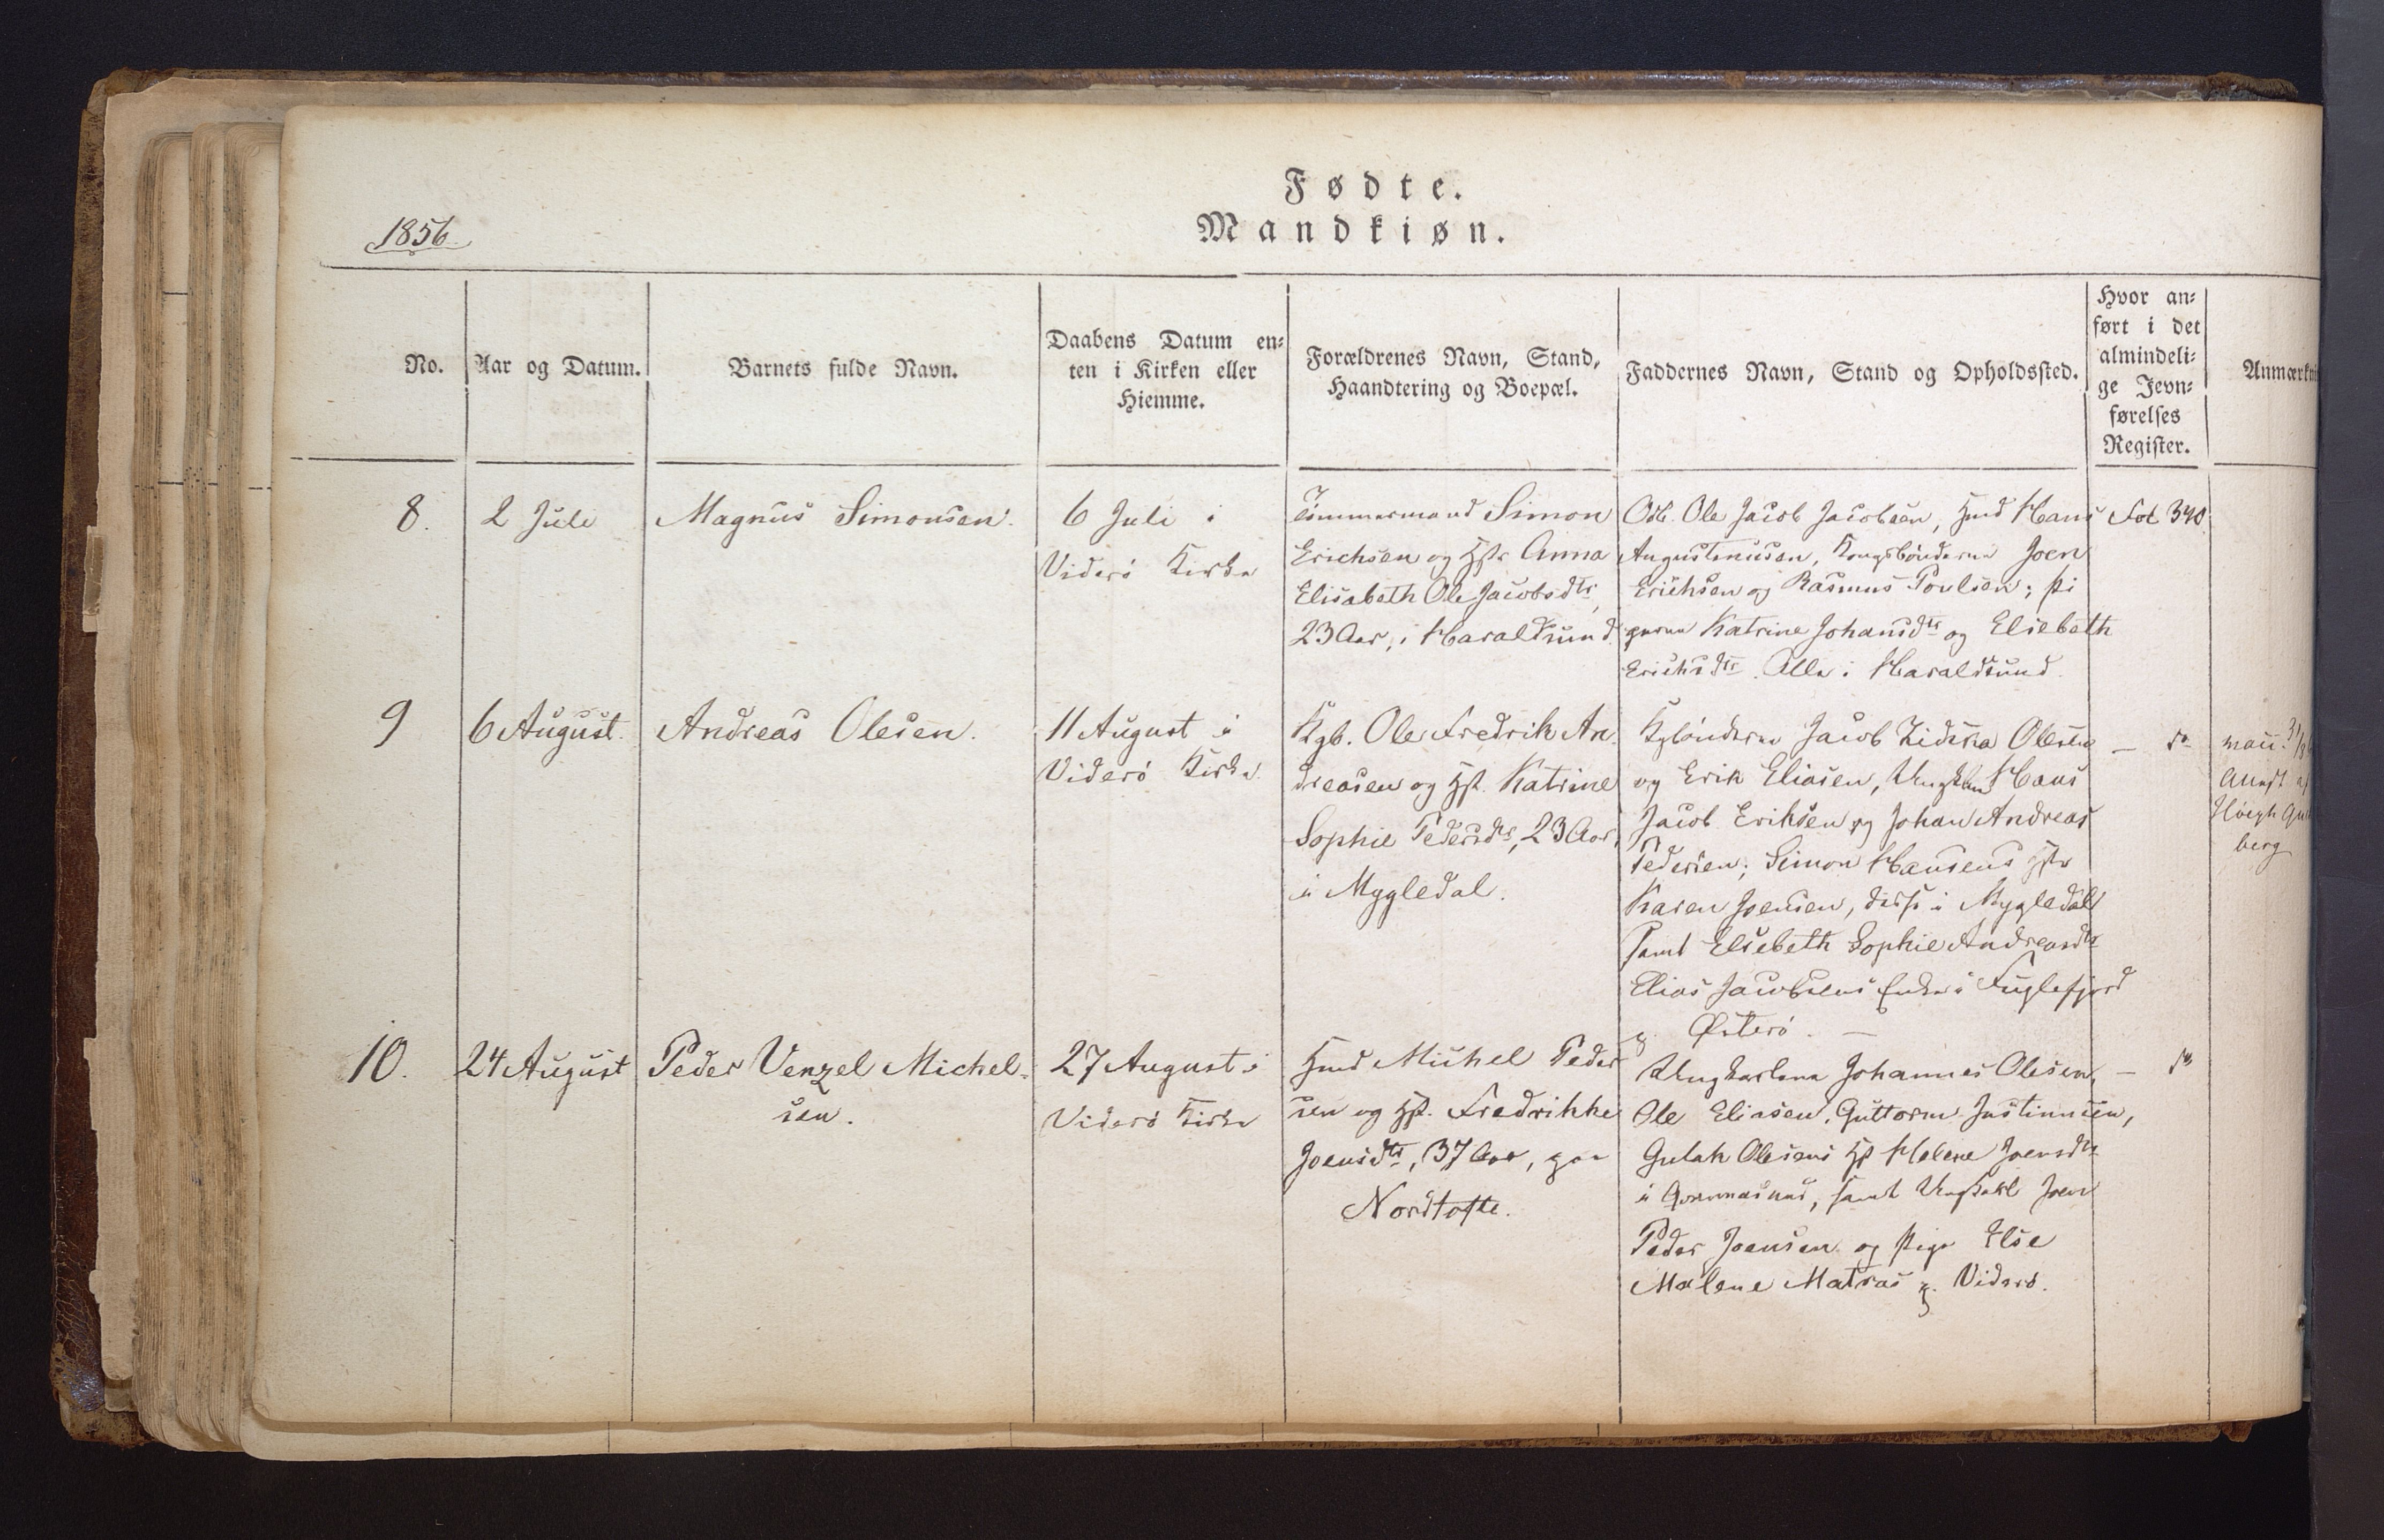 1856.
Fødte.
Mandkiøn.
No.
Aar og Datum.
Barnets fulde Navn.
Daabens Datum en=
ten i Kirken eller
Hiemme.
Forældrenes Navn, Stand,
Haandtering og Boepæl.
Faddernes Navn, Stand og Opholdssted.
Hvor an=
ført i det
almindeli=
ge Jevn=
førelses
Register.
8.
2 Juli
Magnus Simonsen.
6 Juli i
Viderö Kirke
Tömmermand Simon
Erichsen og Hstr Anna
Elisabeth Ole Jacobsdtr,
23 Aar, i Haraldsund.
Odb. Ole Jacob Jacobsen, Hmd Hans
Augustinusen, Kongsbönderne Joen
Erichsen og Rasmus Poulsen; Pi
gerne Katrine Johansdtr og Elsebeth
Erichsdtr. Alle i Haraldsund.
Fol 340
9
6 August.
Andreas Olesen.
11 August i
Viderö Kirke.
Kgb. Ole Fredrik An
dreasen og Hst. Katrine
Sophie Pedersdtr, 23 Aar,
i Myggledal.
Kgbönderne Jacob Olesen
og Erik Eliasen, Ungkarl Hans
Jacob Eriksen og Johan Andreas
Pedersen; Simon Hansens Hstr
Karen Joensen, disse i Mygledal
samt Elsebeth Sophie Andreasdtr
Elias Jacobsens Enke i Fuglefjord
p. Österö. —
— do
Attest af
Höegh
berg
10.
24 August
Peder Venzel Michel-
sen.
27 August i
Viderö Kirke
Hmd Michel Peder
sen og Hst. Fredrikke
Joensdtr, 37 Aar, paa
Nordtofte.
Ungkarlene Johannes Olesen,
Ole Eliasen, Guttorm Justinusen,
Gulak Olesens Hst Malene Joensdtr
i, samt Ungkarl Joen
Peder Joensen og Pige Else
Malene Matras p. Viderö.
— do